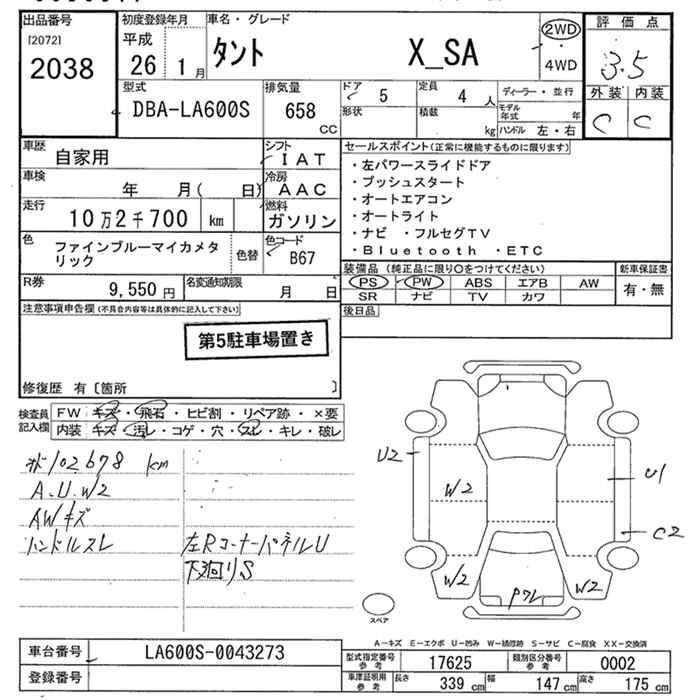 出品番号
[2072]
2038
初度登録年月
平成
26 1月
車名・グレード
タント X_SA
2WD
・
4WD
評価点
3.5
外装 内装
C C
型式
DBA-LA600S
排気量
658
CC
ドア 5
形状
定員 4 人
積載 kg
ディーラー・並行
モデル年式 年
ハンドル 左・右
車歴
自家用
シフト
IAT
車検
年 月( 日)
冷房
AAC
走行
10万2千700 km
燃料
ガソリン
色
ファインブルーマイカメタリック
色替
色コード
B67
R券
9,550 円
名変通知期限
月 日
セールスポイント(正常に機能するものに限ります)
・左パワースライドドア
・プッシュスタート
・オートエアコン
・オートライト
・ナビ ・フルセグTV
・Bluetooth ・ETC
装備品(純正品に限り○をつけてください)
PS PW ABS エアB AW
SR ナビ TV カワ
新車保証書
有・無
後日品
注意事項申告欄(不具合内容等は具体的に記入して下さい)
第5駐車場置き
修復歴 有〔箇所 〕
検査員記入欄
FW キズ・飛石・ヒビ割・リペア跡・×要
内装 キズ・汚レ・コゲ・穴・スレ・キレ・破レ
102678 km
A.U.W2
AWキズ
ハンドルスレ
左Rコーナーパネル U
下廻りS
U2
W2
U1
C2
W2
W2
スペア
A−キズ E−エクボ U−凹み W−補修跡 S−サビ C−腐食 XX−交換済
車台番号
LA600S-0043273
登録番号
型式指定番号
参考
17625
類別区分番号
参考
0002
車庫証明用
参考
長さ 339 cm
幅 147 cm
高さ 175 cm